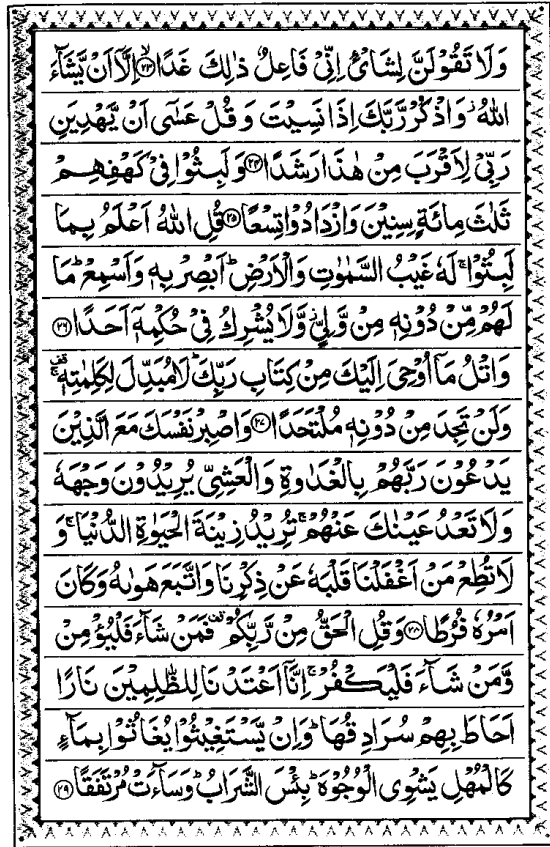 وَلَا تَقُوۡلَنَّ لِشَایۡءٍ اِنِّیۡ فَاعِلٌ ذٰلِكَ غَدًا ﴿۲۳﴾ اِلَّاۤ اَنۡ یَّشَآءَ
اللّٰهُ ؗ وَاذۡكُرۡ رَّبَّكَ اِذَا نَسِیۡتَ وَقُلۡ عَسٰۤی اَنۡ یَّهۡدِیَنِ
رَبِّیۡ لِاَقۡرَبَ مِنۡ هٰذَا رَشَدًا ﴿۲۴﴾ وَلَبِثُوۡا فِیۡ كَهۡفِهِمۡ
ثَلٰثَ مِائَةٍ سِنِیۡنَ وَازۡدَادُوۡا تِسۡعًا ﴿۲۵﴾ قُلِ اللّٰهُ اَعۡلَمُ بِمَا
لَبِثُوۡا ۚ لَهٗ غَیۡبُ السَّمٰوٰتِ وَالۡاَرۡضِ ؕ اَبۡصِرۡ بِهٖ وَاَسۡمِعۡ ؕ مَا
لَهُمۡ مِّنۡ دُوۡنِهٖ مِنۡ وَّلِیٍّ ؗ وَّلَا یُشۡرِكُ فِیۡ حُكۡمِهٖۤ اَحَدًا ﴿۲۶﴾
وَاتۡلُ مَاۤ اُوۡحِیَ اِلَیۡكَ مِنۡ كِتَابِ رَبِّكَ ؕ لَا مُبَدِّلَ لِكَلِمٰتِهٖ ۚ قف
وَلَنۡ تَجِدَ مِنۡ دُوۡنِهٖ مُلۡتَحَدًا ﴿۲۷﴾ وَاصۡبِرۡ نَفۡسَكَ مَعَ الَّذِیۡنَ
یَدۡعُوۡنَ رَبَّهُمۡ بِالۡغَدٰوةِ وَالۡعَشِیِّ یُرِیۡدُوۡنَ وَجۡهَهٗ
وَلَا تَعۡدُ عَیۡنٰكَ عَنۡهُمۡ ۚ تُرِیۡدُ زِیۡنَةَ الۡحَیٰوةِ الدُّنۡیَا ۚ وَ
لَا تُطِعۡ مَنۡ اَغۡفَلۡنَا قَلۡبَهٗ عَنۡ ذِكۡرِنَا وَاتَّبَعَ هَوٰىهُ وَكَانَ
اَمۡرُهٗ فُرُطًا ﴿۲۸﴾ وَقُلِ الۡحَقُّ مِنۡ رَّبِّكُمۡ قف فَمَنۡ شَآءَ فَلۡیُؤۡمِنۡ
وَّمَنۡ شَآءَ فَلۡیَكۡفُرۡ ۚ اِنَّاۤ اَعۡتَدۡنَا لِلظّٰلِمِیۡنَ نَارًا
اَحَاطَ بِهِمۡ سُرَادِقُهَا ؕ وَاِنۡ یَّسۡتَغِیۡثُوۡا یُغَاثُوۡا بِمَآءٍ
كَالۡمُهۡلِ یَشۡوِی الۡوُجُوۡهَ ؕ بِئۡسَ الشَّرَابُ ؕ وَسَآءَتۡ مُرۡتَفَقًا ﴿۲۹﴾